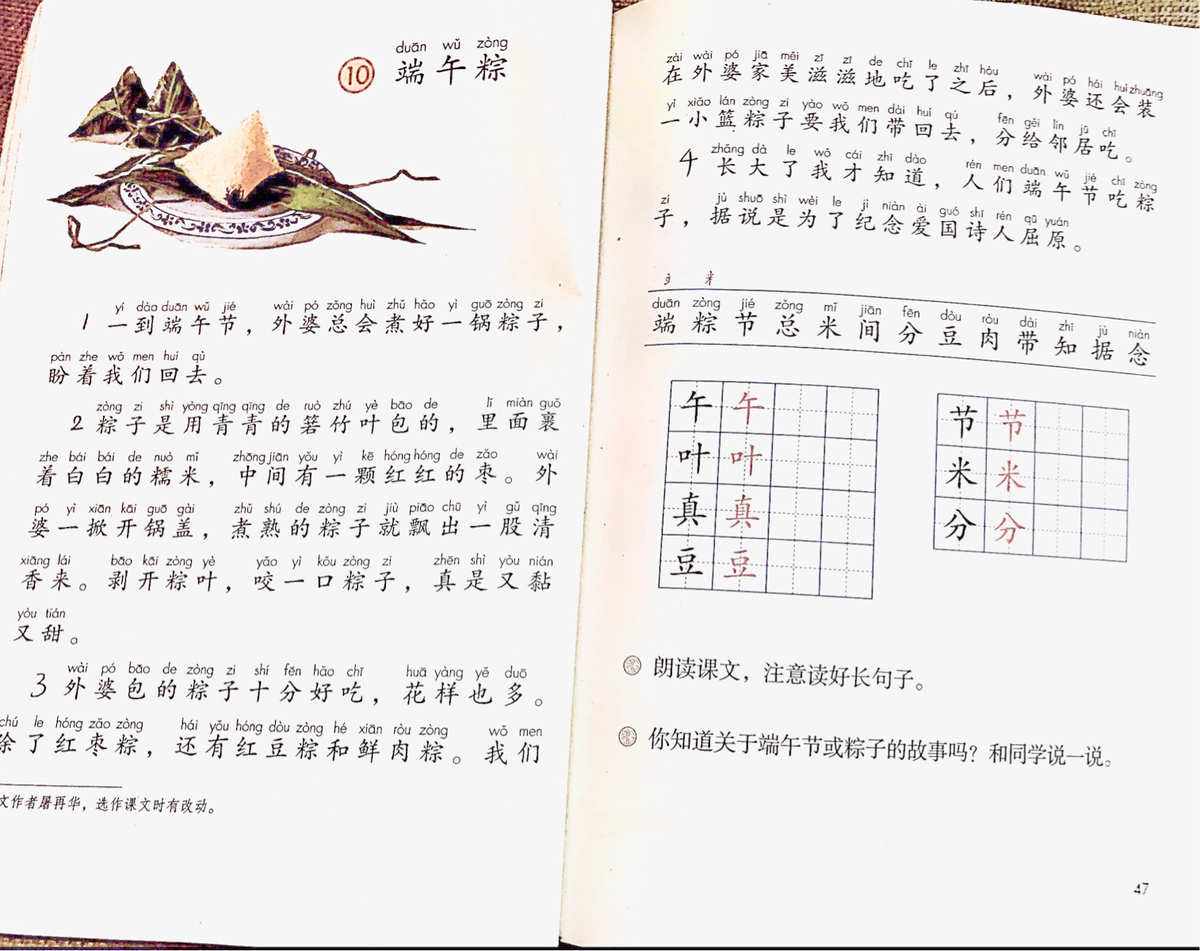 duān wǔ zòng
10 端午粽
yí dào duān wǔ jié wài pó zǒng huì zhǔ hǎo yì guō zòng zi
1 一到端午节，外婆总会煮好一锅粽子，
pàn zhe wǒ men huí qù
盼着我们回去。
zòng zi shì yòng qīng qīng de ruò zhú yè bāo de lǐ miàn guǒ
2 粽子是用青青的箬竹叶包的，里面裹
zhe bái bái de nuò mǐ zhōng jiān yǒu yì kē hóng hóng de zǎo wài
着白白的糯米，中间有一颗红红的枣。外
pó yì xiān kāi guō gài zhǔ shú de zòng zi jiù piāo chū yì gǔ qīng
婆一掀开锅盖，煮熟的粽子就飘出一股清
xiāng lái bāo kāi zòng yè yǎo yì kǒu zòng zi zhēn shì yòu nián
香来。剥开粽叶，咬一口粽子，真是又黏
yòu tián
又甜。
wài pó bāo de zòng zi shí fēn hǎo chī huā yàng yě duō
3 外婆包的粽子十分好吃，花样也多。
chú le hóng zǎo zòng hái yǒu hóng dòu zòng hé xiān ròu zòng wǒ men
除了红枣粽，还有红豆粽和鲜肉粽。我们
文作者屠再华，选作课文时有改动。
zài wài pó jiā měi zī zī de chī le zhī hòu wài pó hái huì zhuāng
在外婆家美滋滋地吃了之后，外婆还会装
yì xiǎo lán zòng zi yào wǒ men dài huí qù fēn gěi lín jū chī
一小篮粽子要我们带回去，分给邻居吃。
zhǎng dà le wǒ cái zhī dào rén men duān wǔ jié chī zòng
4 长大了我才知道，人们端午节吃粽
zi jù shuō shì wèi le jì niàn ài guó shī rén qū yuán
子，据说是为了纪念爱国诗人屈原。
duān zòng jié zǒng mǐ jiān fēn dòu ròu dài zhī jù niàn
端粽节总米间分豆肉带知据念
午午 节节
叶叶 米米
真真 分分
豆豆
朗读课文，注意读好长句子。
你知道关于端午节或粽子的故事吗？和同学说一说。
47